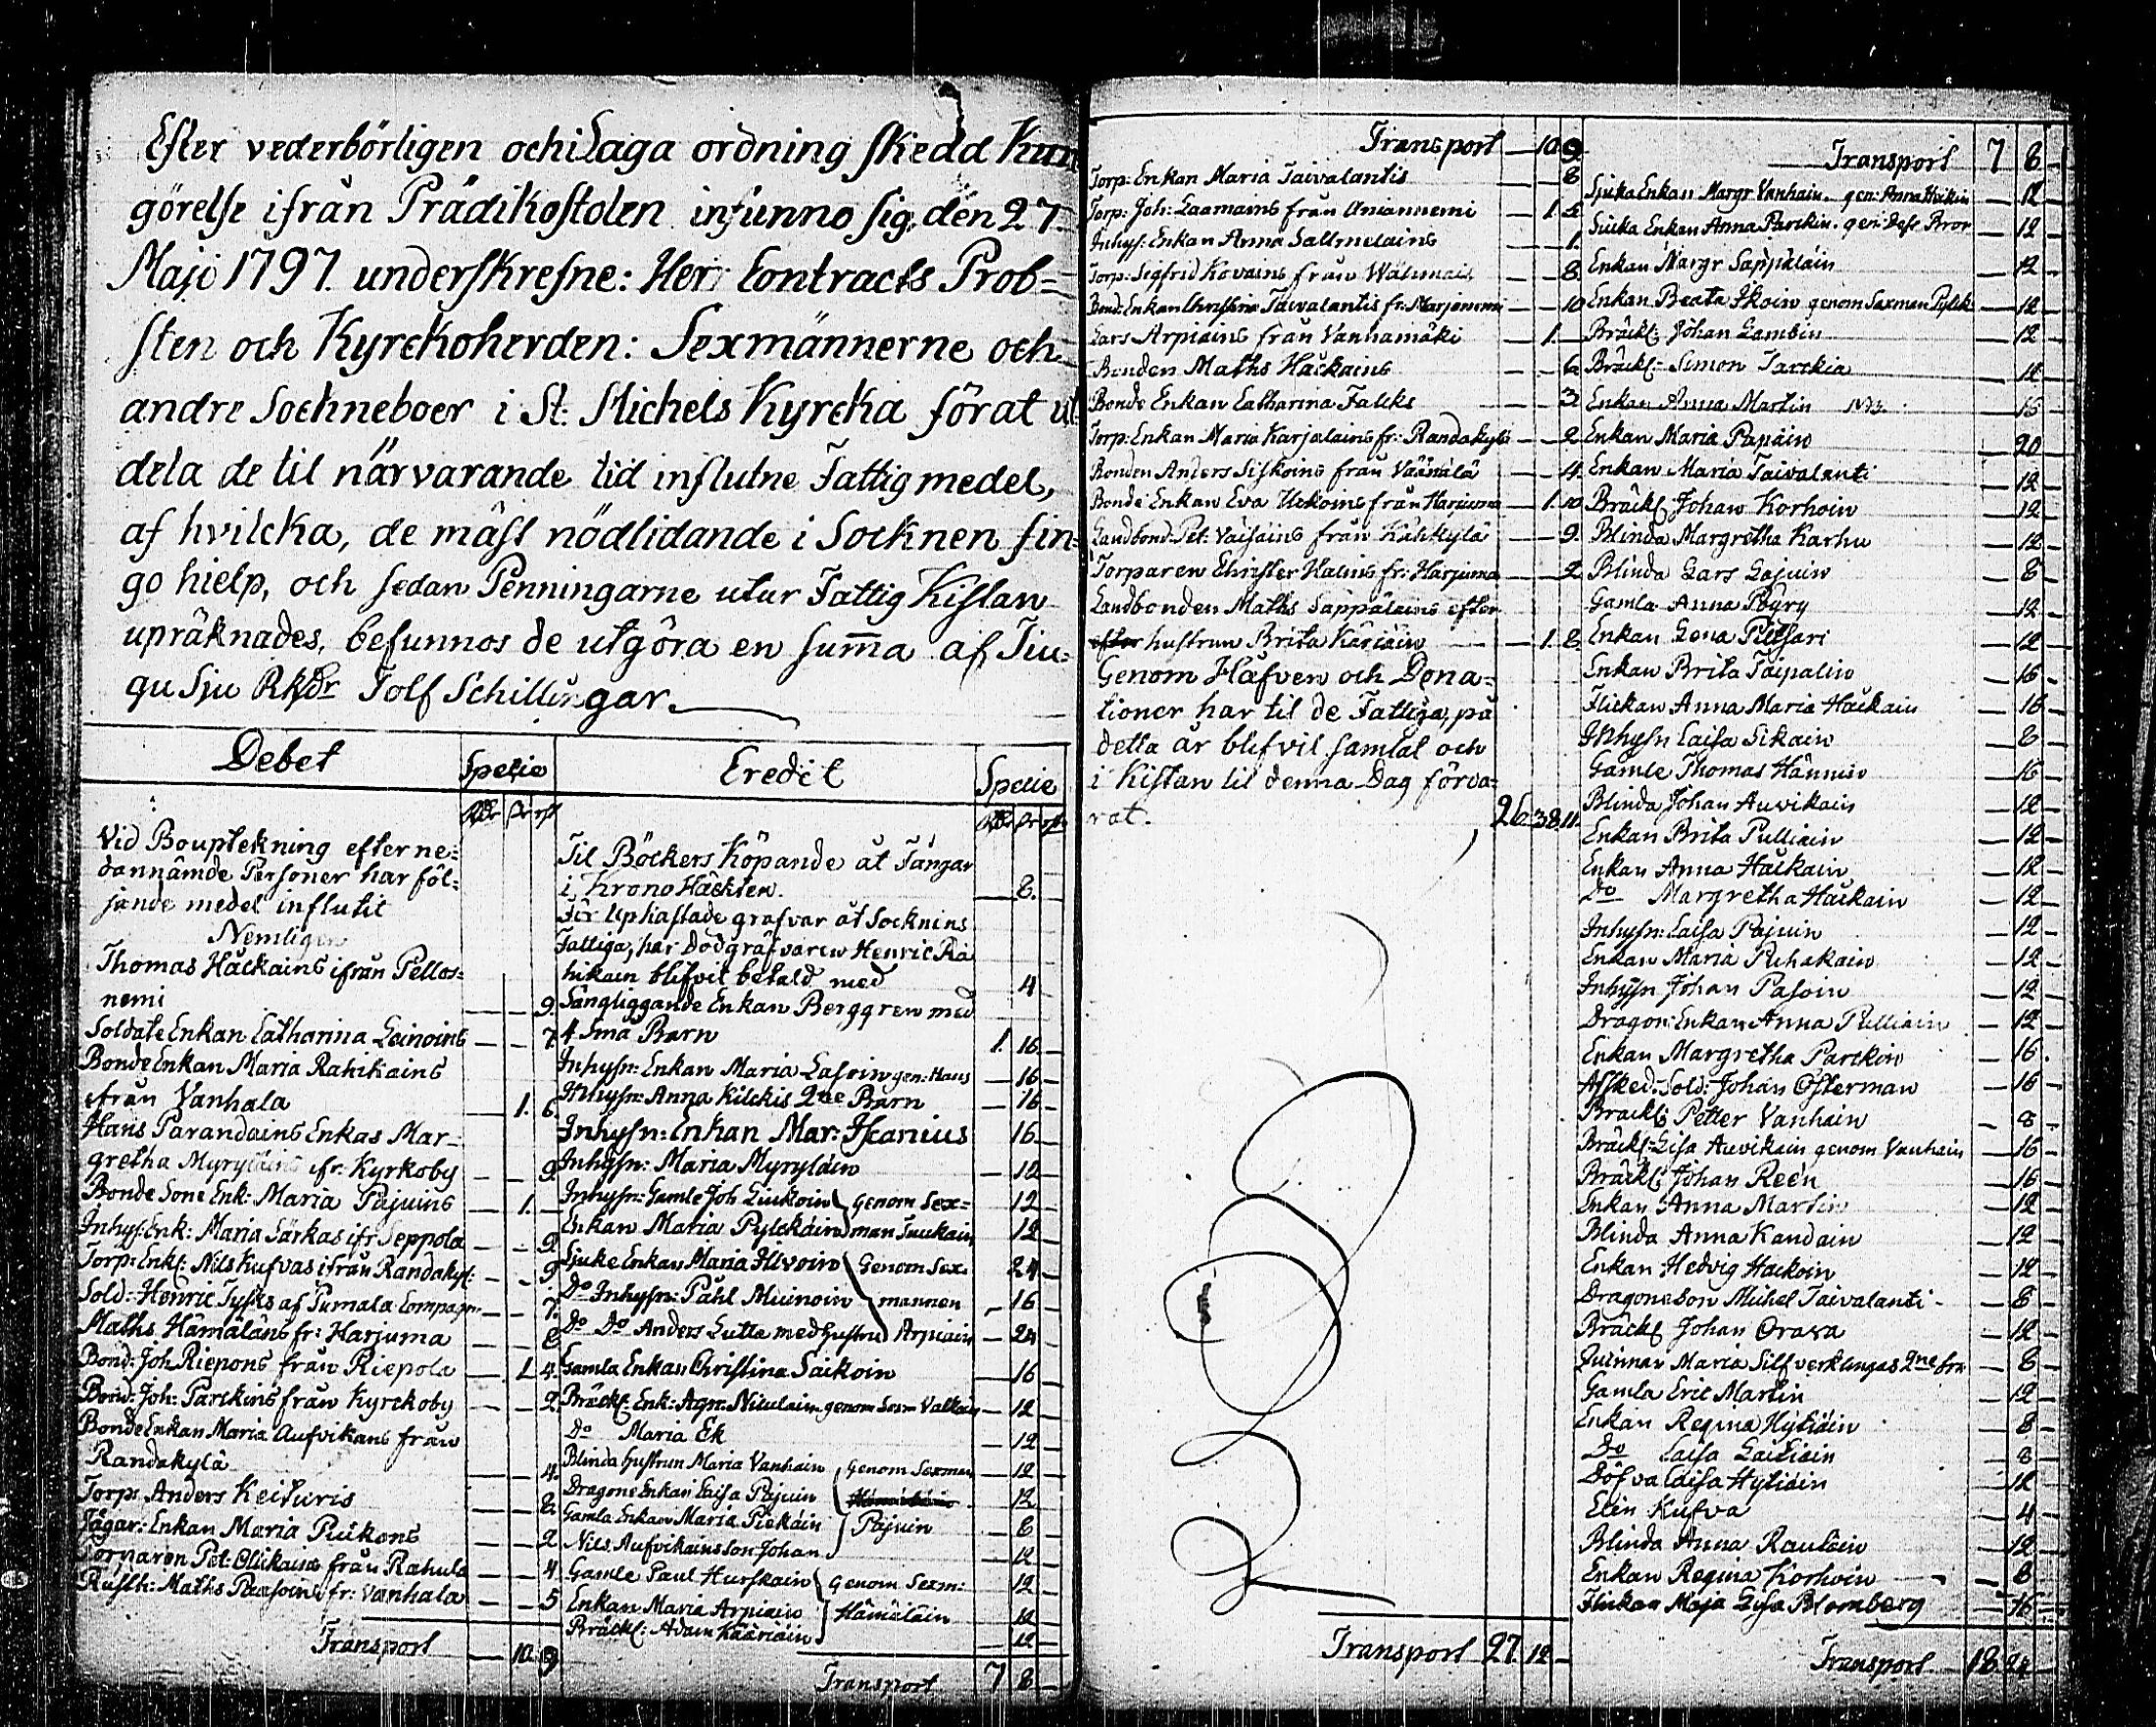 Efter vederbörligen och i Laga ordning skedd Kun
görelse ifrån Prädikostolen infunno sig den 27
Maji 1797. underskrefne: Herr Contracts Prob=
sten och Kyrckoherden: Sexmännerne och
andre Sockneboer i St: Michels Kyrcka förat ut
dela de til närvarande tid influtne Fattigmedel,
af hvilcka, de mäst nödlidande i Socknen fin=
go hielp, och sedan Penningarne utur Fattig Kistan
upräknades, befunnos de utgöra en summa af Tiu=
gu Sju Rkdr Tolf Schillingar.
Debet Specie
Vid Bouptekning efter ne=
dannämde Personer har föl=
jande medel influtit
Nemligen
Thomas Häckains ifrån Pellos=
nemi — — 9.
Soldate Enkan Catharina Leinoins — — 7.
Bonde Enkan Maria Rahikains
ifrån Vanhala — 1. 6.
Hans Parandains Enkas Mar=
gretha Myryläins ifr: Kyrkoby — — 9.
Bonde Sons Enk: Maria Pajuins — 1. —
Inhys: Enk: Maria Särkas ifr Seppola — — 9
Torp: Enk: Nils Kufvas ifrån Randakyl: — — 9
Sold: Henric Tysks af Pumala Compagn: — — 7.
Maths Hämäläns fr: Harjuma — — 8
Bond: Joh Riepons från Riepola — 1. 4.
Bond: Joh: Parckins från Kyrckoby — — 2.
Bonde Enkan Maria Aufvikans från
Randakylä — — 4.
Torp: Anders Keituris — — 8.
Jägar: Enkan Maria Pulkons — — 2
Torparen Pet: Olickains från Rahula — — 4.
Rusth: Maths Paasoins fr: Vanhala — — 5
Transport — 10. 9
Credit Specie
Til Böckers Köpande åt Fångar
i Krono Häckten. — 8.
För Upkastade grafvar åt Socknens
Fattiga, har Dödgräfvaren Henric Ra
hikain blifvit betald med 4
Sängliggande Enkan Berggren med
4 Små Barn 1. 16. —
Inhysn: Enkan Maria Lasoin gen: Hans — 16 —
Inhysn: Anna Kilckis 2ne Barn — 16 —
Inhysn: Enkan Mar: Iscanius 16 —
Inhysn: Maria Myryläin — 12 —
Inhysn: Gamle Joh Liukoin Genom Sex= 12 —
Enkan Maria Pylckäin man Tuukain 12 —
Sjuke Enkan Maria Ilvoin Genom Sex= 24 —
Do Inhysn: Påhl Muinoin mannen — 16 —
Do Do Anders Lutta med hustru Arpiain — 24 —
Gamla Enkan Christina Saikoin — 16 —
Bräckl: Enk: Agn: Niculain genom Sexm Valkain — 12 —
Do Maria Ek — 12 —
Blinda hustrun Maria Vanhain Genom Sexman — 12 —
Dragone Enkan Caisa Pajuin 12 —
Gamla Enkan Maria Piekäin Pajuin — 8 —
Nils Aufvikains Son Johan — 12 —
Gamle Paul Hurskain Genom Sexm: — 12 —
Enkan Maria Arpiain Hämäläin — 12 —
Bräckl: Adam Kääriäin — 12 —
Transport 7 8 —
Transport — 10 9
Torp: Enkan Maria Taivalantis — — 8
Torp: Joh: Laamains från Aniannemi — 1. 5
Inhys: Enkan Anna Sallmelains — 1.
Torp: Sigfrid Kovains från Wätmail — — 8.
Bond: Enkan Christina Taivalantis fr: Marjonemi — — 10
Lars Arpiains från Vanhamäki — 1. —
Bonden Maths Häckains — — 6
Bonde Enkan Catharina Falcks — — 3
Torp: Enkan Maria Karjalains fr: Randakylä — — 2
Bonden Anders Siskoins från Väänälä — — 4.
Bonde Enkan Eva Ukkoins från Harjuma — 1. 10
Landbond: Pet: Väisäins från Kähkylä — — 9.
Torparen Christer Halms fr: Harjuma — — 2
Landbonden Maths Sappälains efter
efter hustrun Brita Käriäin — 1. 8
Genom Håfven och Dona=
tioner har til de Fattiga, på
detta år blifvit samlat och
i Kistan til denna Dag förva=
rat. 26. 38. 11.
Transport 27. 12 —
Transport 7 8 —
Sjuka Enkan Margr Vanhain gen: Anna Häkin — 12 —
Siuka Enkan Anna Parckin gen: Dess Bror — 12 —
Enkan Margr Sappäläin — 12 —
Enkan Beata Ikoin genom Saxman Pylck — 12 —
Bräckl: Johan Lambin — 12 —
Bräckl: Simon Tarckia — 12 —
Enkan Anna Martin — 16 —
Enkan Maria Papäin — 20 —
Enkan Maria Taivalanti — 12 —
Bräckl: Johan Korhoin — 12 —
Blinda Margretha Karhu — 12 —
Blinda Lars Lajuin — 8 —
Gamla Anna Pöyry — 12 —
Enkan Lena Pitsari — 12 —
Enkan Brita Taipalin — 16 —
Flickan Anna Maria Häckain — 16 —
Inhysn Caisa Sikain — 8 —
Gamle Thomas Hännin — 16 —
Blinda Johan Auvikain — 12 —
Enkan Brita Pulliain — 12 —
Enkan Anna Häckain — 12 —
Do Margretha Häckain — 12 —
Inhysn: Caisa Pajuin — 12 —
Enkan Maria Puhakain — 12 —
Inhysn Johan Pasoin — 12 —
Dragon: Enkan Anna Pulliain — 12 —
Enkan Margretha Parckin — 16.
Afsked: Sold: Johan Österman — 16 —
Bräckl: Petter Vanhain — 8 —
Bräckl: Lisa Auvikain genom Vanhain — 16 —
Bräckl: Johan Reén — 16 —
Enkan Anna Martin — 12 —
Blinda Anna Kandain — 12 —
Enkan Hedvig Hackoin — 12 —
Dragoneson Michel Taivalanti — 8 —
Bräckl Johan Orava — 12 —
Quinnan Maria Silfverklingas 2ne — 8 —
Gamla Eric Martin — 12 —
Enkan Regina Hytiäin — 8 —
Do Caisa Laitiain — 8 —
Döfva Caisa Hytiäin — 12 —
Elin Kufva — 4 —
Blinda Anna Rautiain — 12 —
Enkan Regina Korhoin — 8 —
Flickan Maja Lisa Blomberg — 16 —
Transport 18. 24 —